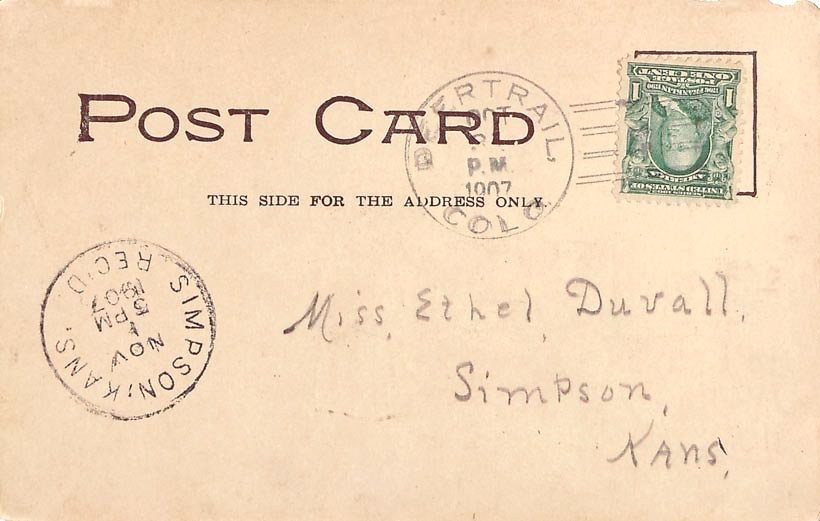 POST CARD
THIS SIDE FOR THE ADDRESS ONLY.
DEERTRAIL,
OCT
P.M.
1907
COLO.
ONE CENT
POSTAGE
1 1
FRANKLIN
UNITED STATES OF
AMERICA
SIMPSON, KANS.
NOV
1
5 PM
1907
REC'D
Miss, Ethel, Duvall,
Simpson,
Kans,